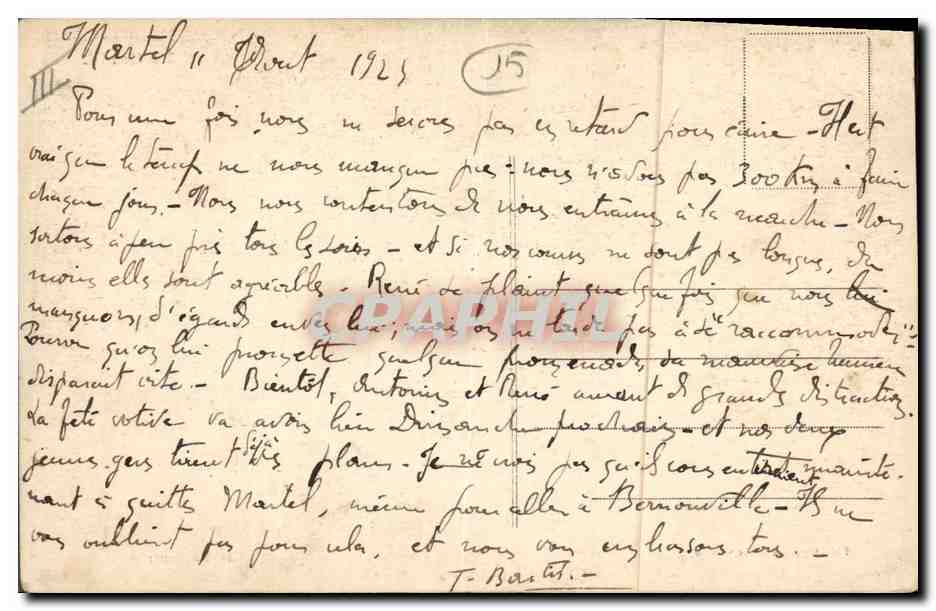 Martel 11 Aout 1925
15
III
Pour une fois nous ne serons pas en retard pour écrire - Il est
vrai que le temps ne nous manque pas - nous n'avons pas 300 Km à faire
chaque jour. - Nous nous contentons de nous entraîner à la marche - Nous
sortons à peu près tous les soirs - et si nos courses ne sont pas longues, du
moins elles sont agréables - René se plaint quelque fois que nous lui
manquons, d'égards envers lui; mais on ne tarde pas à se raccommoder;
Pourvu qu'on lui promette quelque promenade, sa mauvaise humeur
disparait vite. - Bientôt, Antonin et René auront de grandes distractions.
La fête votive va avoir lieu Dimanche prochain - et nos deux
jeunes gens tirent déjà des plans - Je ne crois pas qu'ils consentiraient mainte-
nant à quitter Martel, même pour aller à Bernouville - Ils ne
vous oublient pas pour cela, et nous vous embrassons tous. -
CPARAMA
CRAPHIL